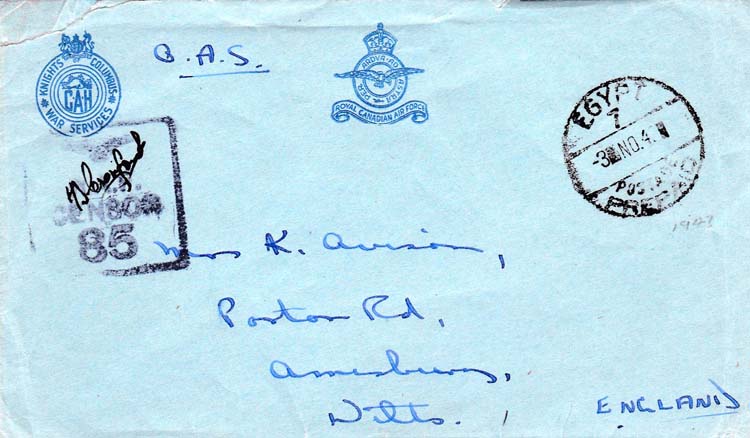 O.A.S.
KNIGHTS OF COLUMBUS
CAH
WAR SERVICES
PER ARDVA AD ASTRA
ROYAL CANADIAN AIR FORCE
EGYPT
7
-3 NO. 4
POSTAGE
PREPAID
1943
CENSOR
85
Miss K. Avison,
Porton Rd,
Amesbury,
Wilts.
ENGLAND